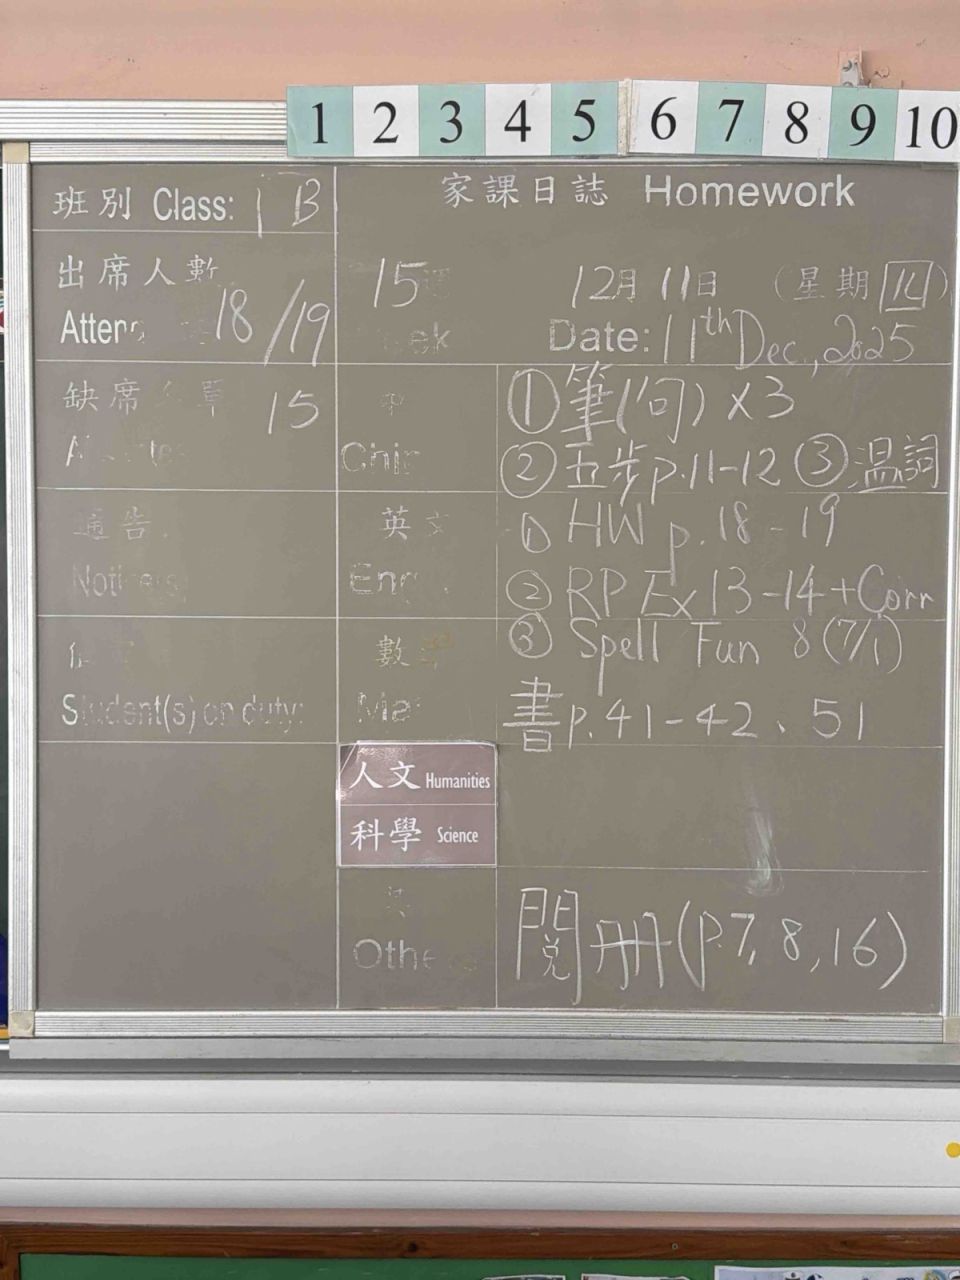 1 2 3 4 5 6 7 8 9 10
班別 Class: 1B
家課日誌 Homework
出席人數
18/19
15
12月11日 (星期四)
Date: 11th Dec., 2025
缺席
15
①筆(句)x3
②五步p.11-12 ③温詞
通告
英文
①HW p.18-19
②RP Ex 13-14+Corr
③Spell Fun 8(7/1)
Student(s) on duty:
數學
書p.41-42、51
人文 Humanities
科學 Science
閱冊(p.7,8,16)